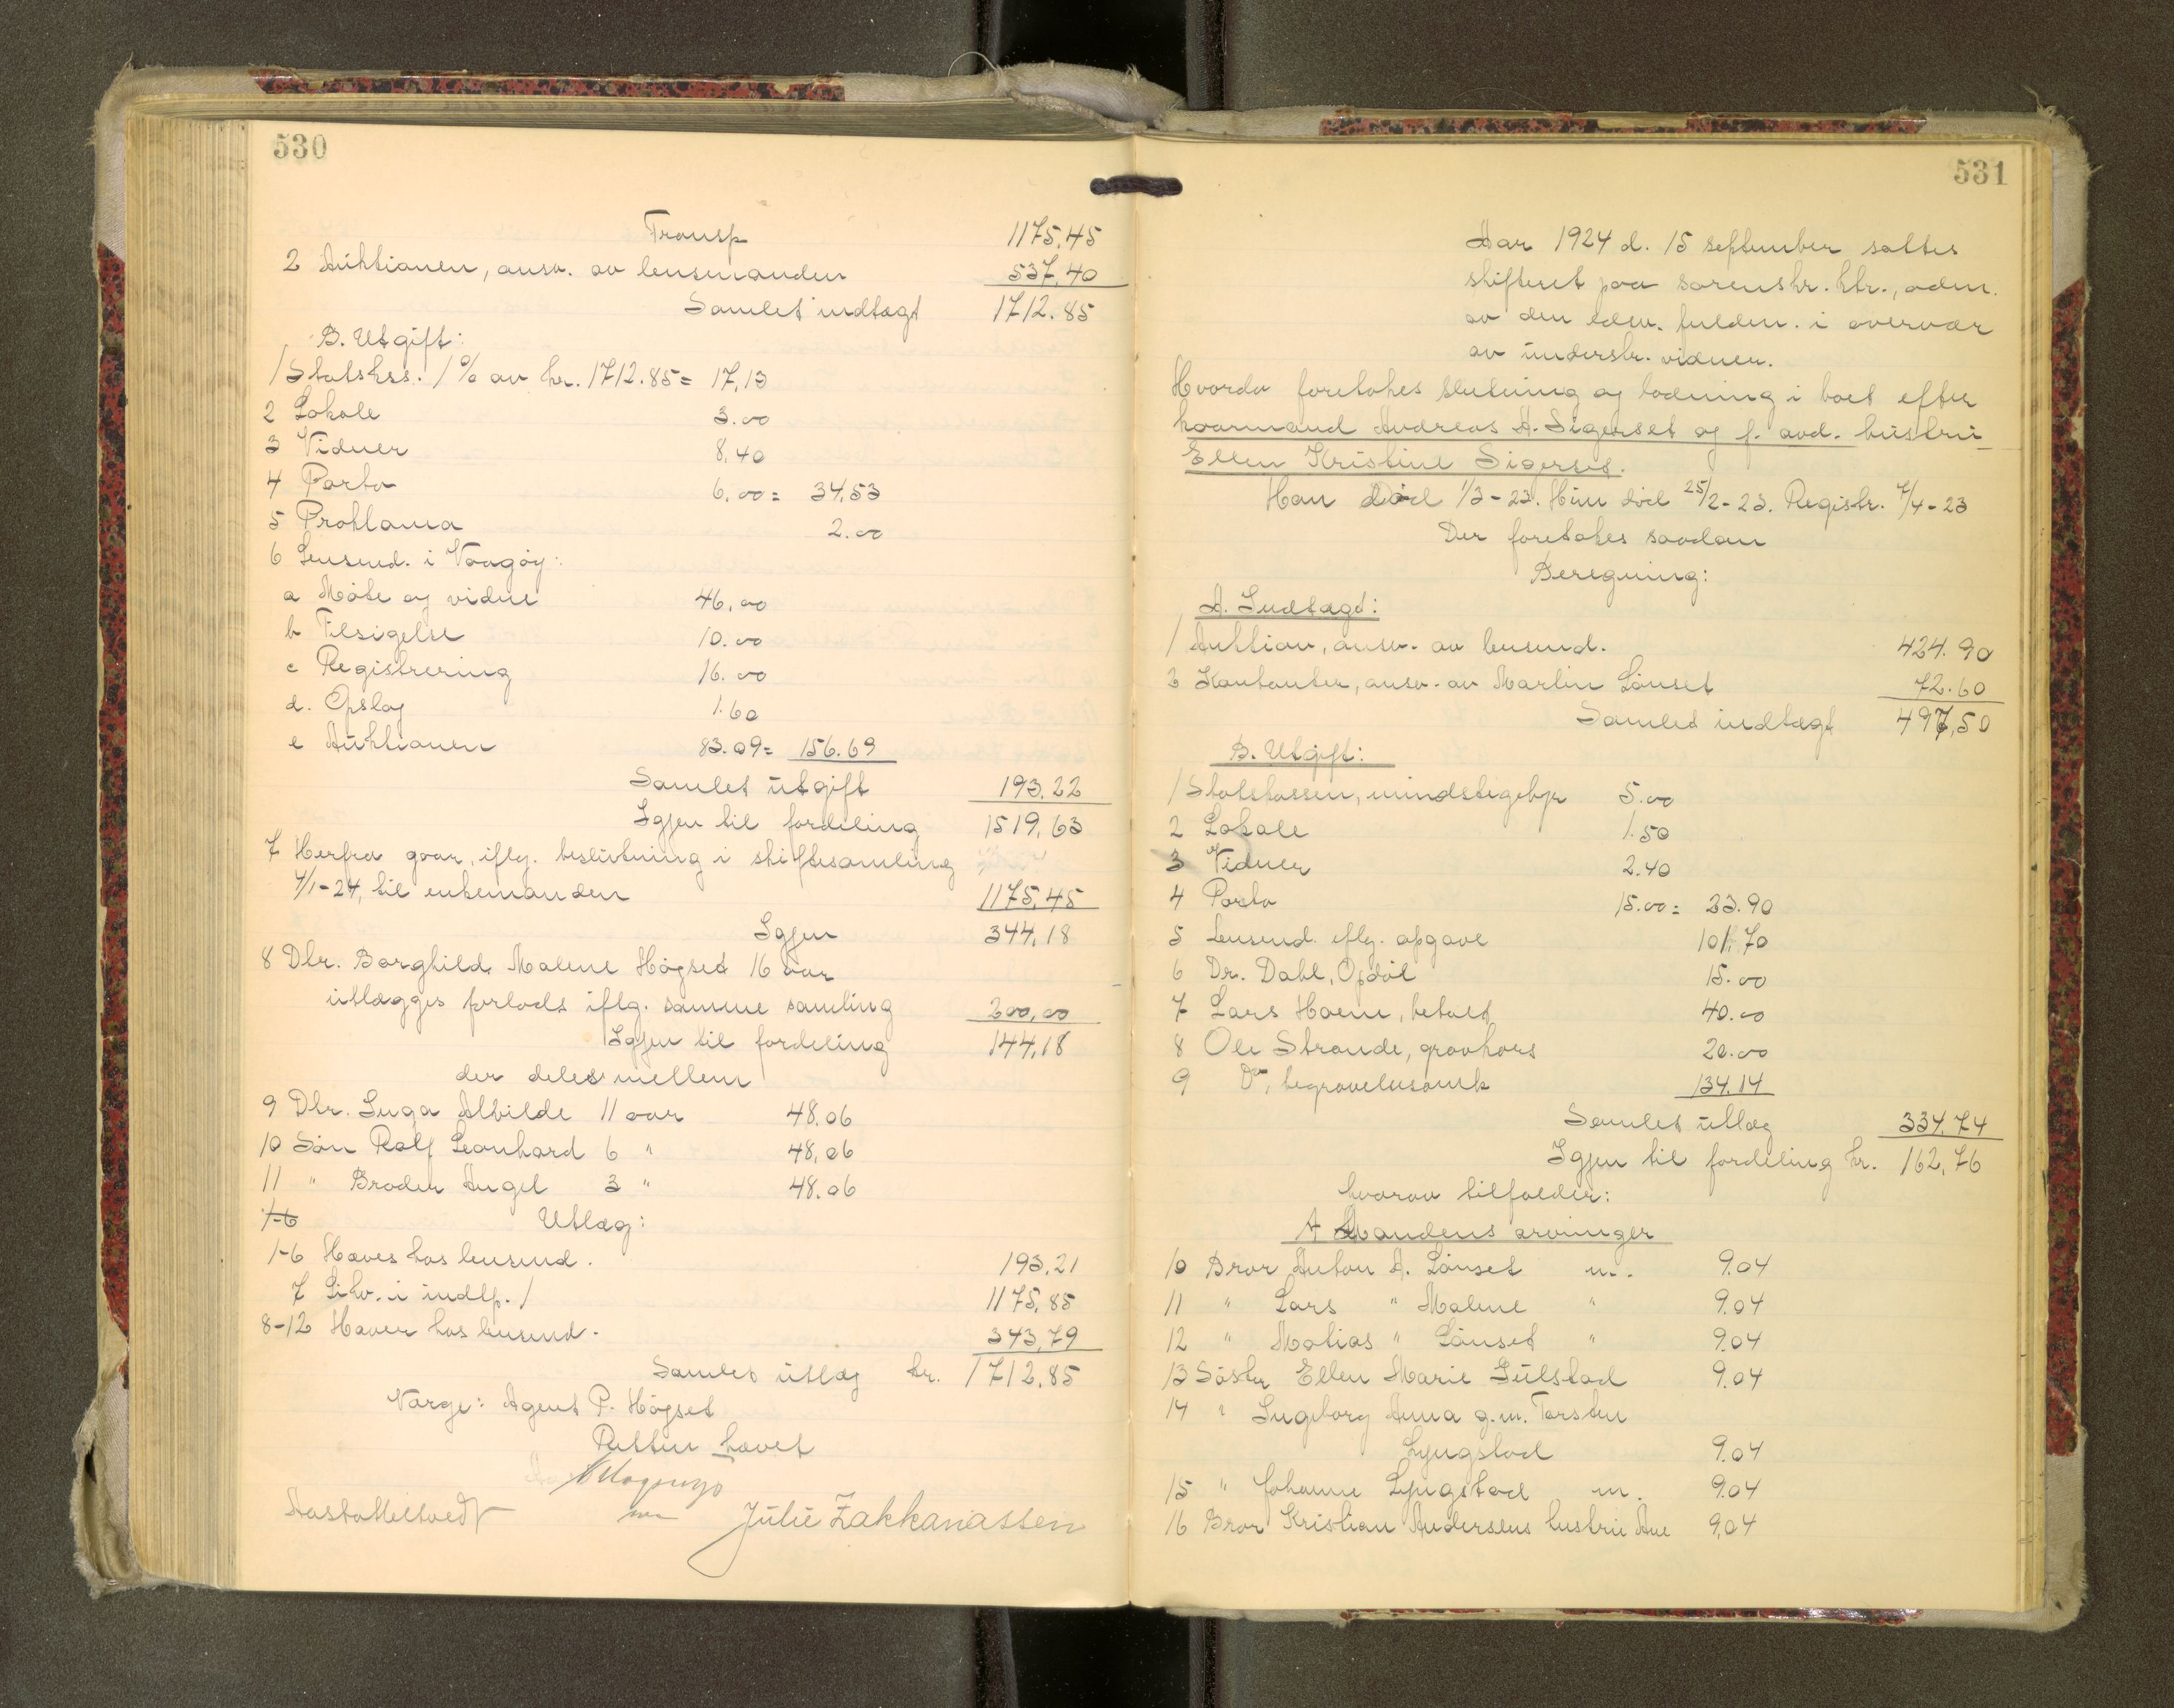 530
Transp 1175.45
2 Auktionen, ansv. av lensmanden 537.40
Samlet indtægt 1712.85
B. Utgift:
1 Statskss. 1% av kr. 1712.85 = 17,13
2 Lokale 3.00
3 Vidner 8.40
4 Porto 6.00 = 34,53
5 Proklama 2.00
6 Lensmd. i Vaagøy:
a Møte og vidne 46.00
b Tilsigelse 10.00
c Registrering 16.00
d. Opslag 1.60
e Auktionen 83.09 = 156.69
Samlet utgift 193.22
Igjen til fordeling 1519,63
7 Herfra gaar, iflg. beslutning i skiftesamling
4/1-24, til enkemanden 1175,45
Igjen 344,18
8 Dtr. Borghild Malene Høgset 16 aar
utlægges forlods iflg. samme samling 200,00
Igjen til fordeling 144,18
der deles mellem
9 Dtr. Inga Alvilde 11 aar 48.06
10 Søn Ralf Leonhard 6 " 48,06
11 " Broder Angel 3 " 48.06
1-6 Utlæg:
1-6 Haves hos lensmd. 193,21
7 Likv. i indtp. 1 1175,85
8-12 Haver hos lensmd. 343,79
Samlet utlæg kr. 1712,85
Værge: Agent P. Høgset
Retten hævet
Julie Zakkariassen
531
Aar 1924 d. 15 september sattes
skifteret paa sorenskr. ktr., adm.
av den edsv. fuldm. i overvær
av underskr. vidner.
Hvorda foretokes slutning og lodning i boet efter
kaarmand Andreas A. Sigerset og f. avd. hustru
Ellen Kristine Sigerset.
Han død 1/3-23. Hun død 25/2-23. Registr. 7/4-23
Der foretokes saadan
Beregning:
A. Indtægt:
1 Auktion, ansv. av lensmd. 424.90
2 Kontanter, ansv. av Martin Lønset 72.60
Samlet indtægt 497,50
B. Utgift:
1 Statskassen, mindstegebyr 5.00
2 Lokale 1.50
3 Vidner 2.40
4 Porto 15.00 = 23.90
5 Lensmd. iflg. opgave 101,70
6 Dr. Dahl, Opdøl 15.00
7 Lars Hoem, betalt 40.00
8 Ole Strande, gravkors 20.00
9 Do, begravelsesomk 134.14
Samlet utlæg 334.74
Igjen til fordeling kr. 162,76
hvorav tilfalder:
A Mandens arvinger
10 Bror Anton A. Lønset m. 9.04
11 " Lars " Malene " 9.04
12 " Matias " Lønset " 9.04
13 Søster Ellen Marie Gulstad 9.04
14 " Ingeborg Anna g.m. Torsten
Lyngstad 9.04
15 " Johanne Lyngstad m. 9.04
16 Bror Kristian Andersens hustru Ane 9,04